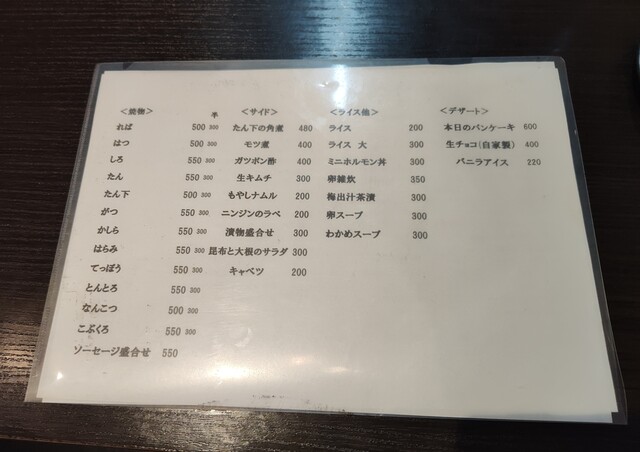 ＜焼物＞ 半
ればー 500 300
はつ 500 300
しろ 550 300
たん 550 300
たん下 500 300
がつ 550 300
かしら 550 300
はらみ 550 300
てっぽう 550 300
とんとろ 550 300
なんこつ 500 300
こぶくろ 550 300
ソーセージ盛合せ 550
＜サイド＞
たん下の角煮 480
モツ煮 400
ガツポン酢 400
生キムチ 300
もやしナムル 200
ニンジンのラペ 200
漬物盛合せ 300
昆布と大根のサラダ 300
キャベツ 200
＜ライス他＞
ライス 200
ライス 大 300
ミニホルモン丼 300
卵雑炊 350
梅出汁茶漬 300
卵スープ 300
わかめスープ 300
＜デザート＞
本日のパンケーキ 600
生チョコ(自家製) 400
バニラアイス 220